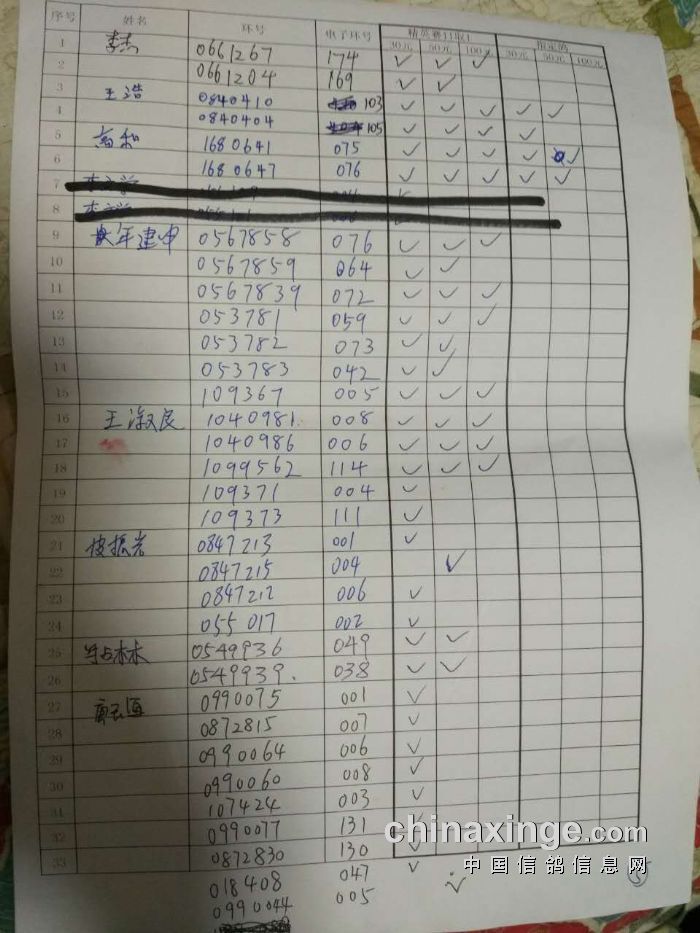 序号 姓名 环号 电子环号 精英赛
30元 50元 100元 30元 50元 100元
1 李杰 0661267 174 ✓ ✓ ✓
2 0661204 169 ✓ ✓
3 王浩 0840410 103 ✓ ✓ ✓ ✓ ✓
4 0840404 105 ✓ ✓ ✓ ✓
5 高和 1680641 075 ✓ ✓ ✓ ✓ ✓
6 1680647 076 ✓ ✓ ✓ ✓ ✓
7
8
9 年建中 0567858 076 ✓ ✓ ✓
10 0567859 064 ✓ ✓
11 0567839 072 ✓ ✓ ✓
12 053781 059 ✓ ✓ ✓
13 053782 073 ✓ ✓
14 053783 042 ✓ ✓
15 109367 005 ✓ ✓ ✓
16 王淑民 1040981 008 ✓ ✓ ✓
17 1040986 006 ✓ ✓ ✓
18 1099562 114 ✓ ✓ ✓
19 109371 004 ✓
20 109373 111 ✓
21 0847213 001 ✓
22 0847215 004 ✓
23 0847212 006 ✓
24 055017 002 ✓
25 0549936 049 ✓ ✓
26 0549939. 038 ✓ ✓
27 0990075 001 ✓
28 0872815 007 ✓
29 0990064 006 ✓
30 0990060 008 ✓
31 107424 003 ✓
32 0990077 131 ✓
33 0872830 130 ✓
018408 047 ✓
0990044 005 ✓
chinaxinge.com
中国信鸽信息网